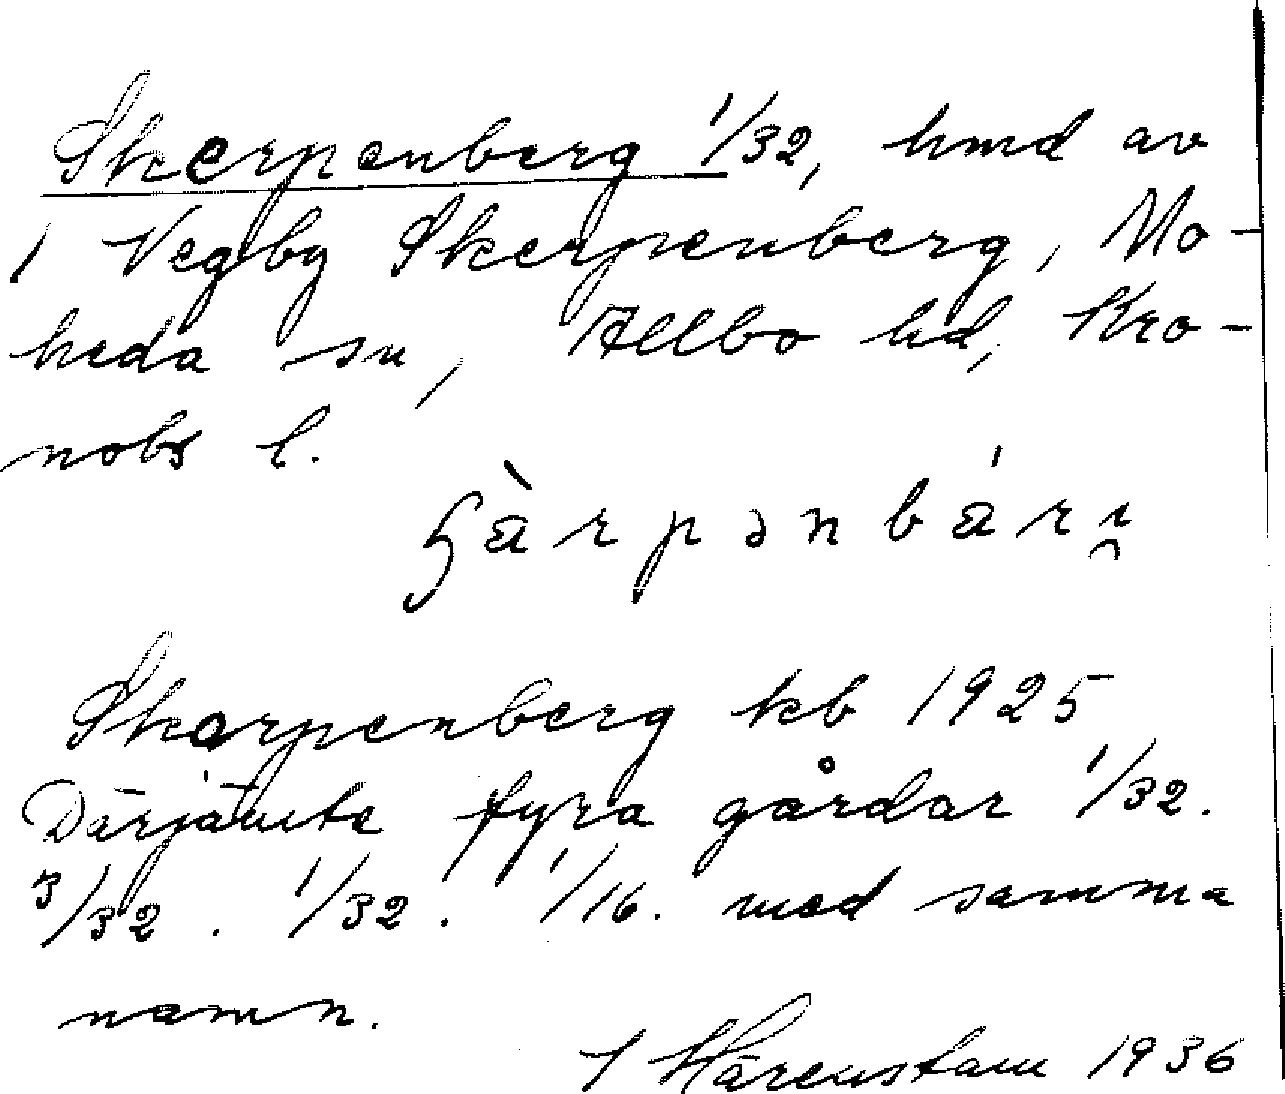 Skerpenberg 1/32, hmd av
1 Vegby Skerpenberg, Mo-
heda sn, Allbo hd, Kro-
nobs l.
ʃàrpənbárɪ̯
Skarpenberg kb 1925
Därjämte fyra gårdar 1/32.
3/32. 1/32. 1/16. med samma
namn.
I Hårenstam 1936